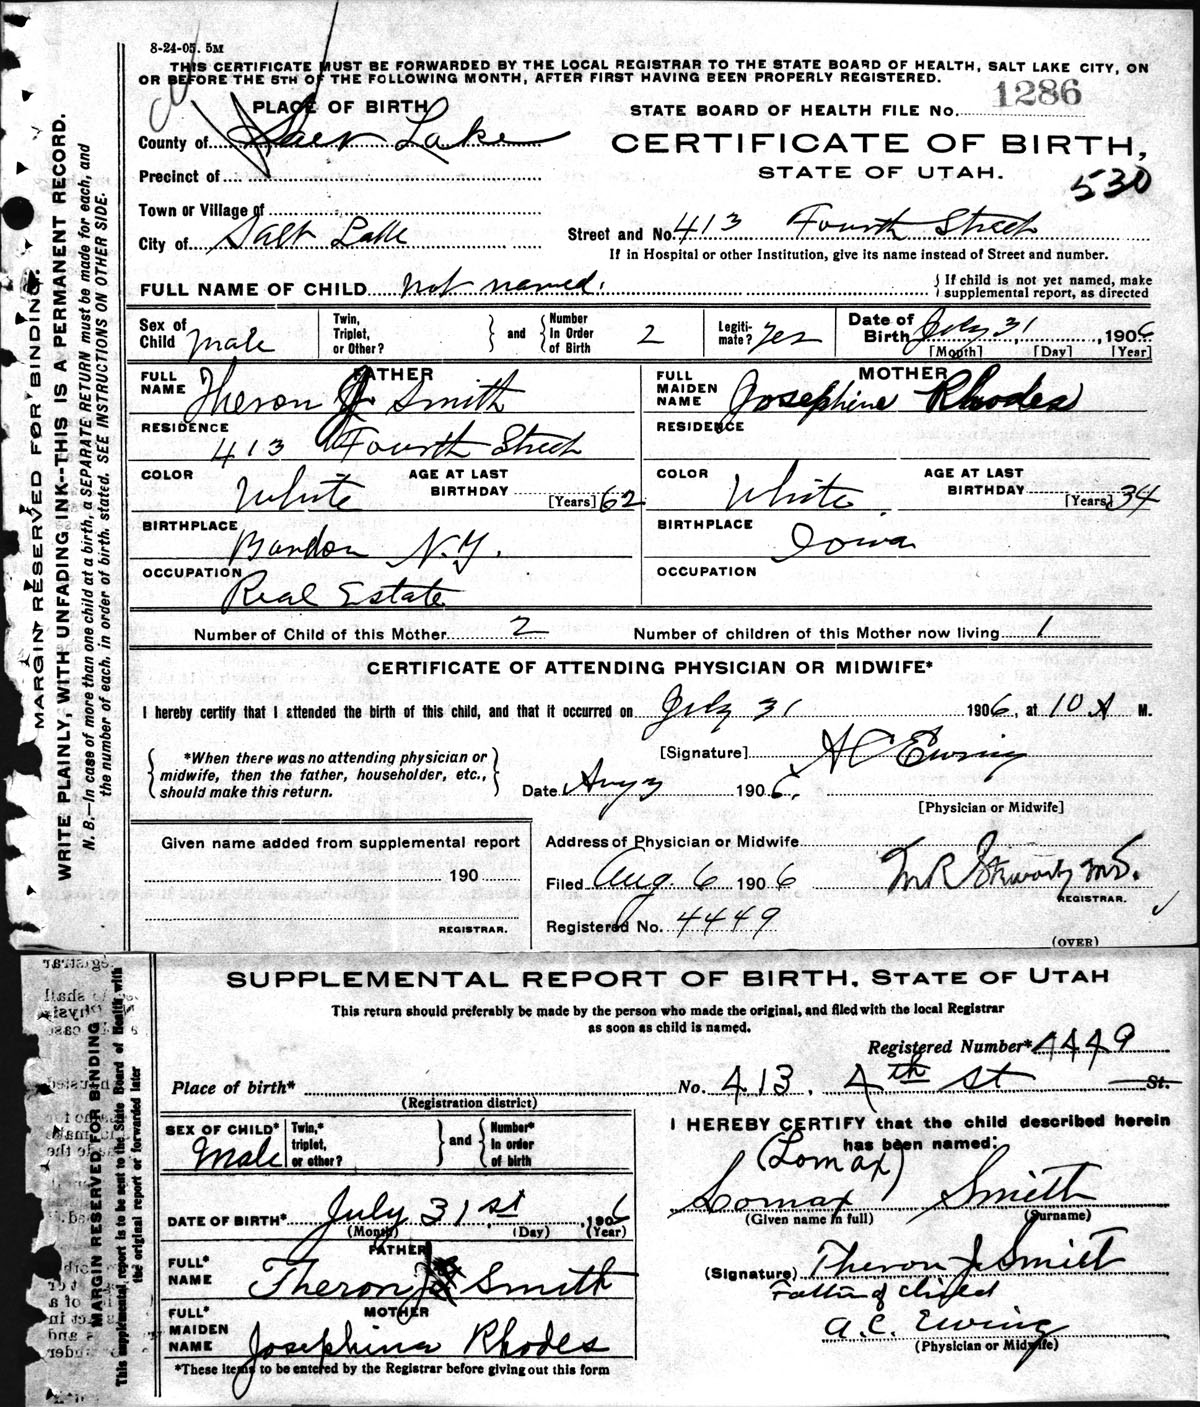 8-24-05. 5M
THIS CERTIFICATE MUST BE FORWARDED BY THE LOCAL REGISTRAR TO THE STATE BOARD OF HEALTH, SALT LAKE CITY, ON
OR BEFORE THE 5TH OF THE FOLLOWING MONTH, AFTER FIRST HAVING BEEN PROPERLY REGISTERED.
PLACE OF BIRTH
STATE BOARD OF HEALTH FILE No. 1286
County of Salt Lake
CERTIFICATE OF BIRTH,
STATE OF UTAH.
530
Precinct of
Town or Village of
City of Salt Lake
Street and No. 413 Fourth Street
If in Hospital or other Institution, give its name instead of Street and number.
FULL NAME OF CHILD not named.
{ If child is not yet named, make
supplemental report, as directed
Sex of Child Male
Twin, Triplet, or Other?
and
Number In Order of Birth 2
Legitimate? Yes
Date of Birth July 31, 1906
[Month] [Day] [Year]
FATHER
FULL NAME Theron J Smith
MOTHER
FULL MAIDEN NAME Josephine Rhodes
RESIDENCE 413 Fourth Street
RESIDENCE
COLOR White
AGE AT LAST BIRTHDAY [Years] 62
COLOR White
AGE AT LAST BIRTHDAY [Years] 34
BIRTHPLACE N.Y.
BIRTHPLACE Iowa
OCCUPATION Real Estate
OCCUPATION
Number of Child of this Mother 2
Number of children of this Mother now living 1
CERTIFICATE OF ATTENDING PHYSICIAN OR MIDWIFE*
I hereby certify that I attended the birth of this child, and that it occurred on July 31 1906, at 10 A M.
*When there was no attending physician or
midwife, then the father, householder, etc.,
should make this return.
[Signature] A C Ewing
Date Aug 3 1906.
[Physician or Midwife]
Given name added from supplemental report
190
REGISTRAR.
Address of Physician or Midwife
Filed Aug. 6 1906
REGISTRAR.
Registered No. 4449
(OVER)
MARGIN RESERVED FOR BINDING.
WRITE PLAINLY, WITH UNFADING INK--THIS IS A PERMANENT RECORD.
N. B.—In case of more than one child at a birth, a SEPARATE RETURN must be made for each, and
the number of each, in order of birth, stated. SEE INSTRUCTIONS ON OTHER SIDE.
SUPPLEMENTAL REPORT OF BIRTH, STATE OF UTAH
This return should preferably be made by the person who made the original, and filed with the local Registrar
as soon as child is named.
Registered Number* 4449
Place of birth*
(Registration district)
No. 413. 4th St St.
SEX OF CHILD* Male
Twin,* triplet, or other?
and
Number* in order of birth
I HEREBY CERTIFY that the child described herein
has been named:
(Lomax)
Lomax Smith
(Given name in full) (Surname)
DATE OF BIRTH* July 31st, 1906
(Month) (Day) (Year)
FATHER
FULL* NAME Theron J Smith
(Signature) Theron J Smith
Father of Child
MOTHER
FULL* MAIDEN NAME Josephina Rhodes
A. C. Ewing
(Physician or Midwife)
*These items to be entered by the Registrar before giving out this form
MARGIN RESERVED FOR BINDING
This supplemental report is to be sent to the State Board of Health with
the original report or forwarded later